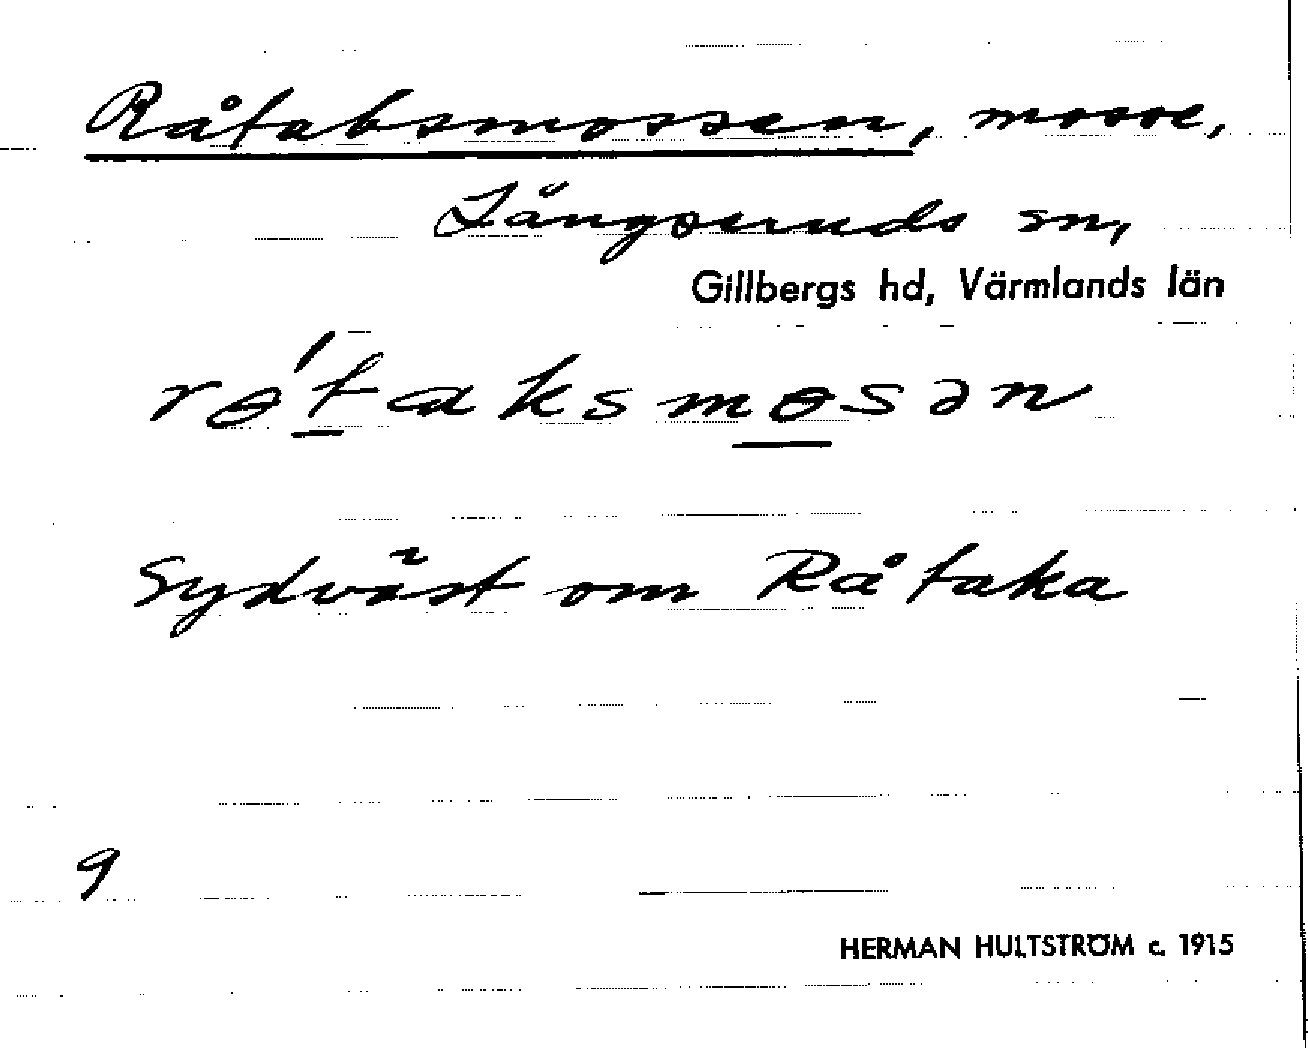 Råtaksmossen, mosse,
Långseruds sn,
Gillbergs hd, Värmlands län
rɵ́taksmɵsən
Sydväst om Råtaka
9
HERMAN HULTSTRÖM c. 1915